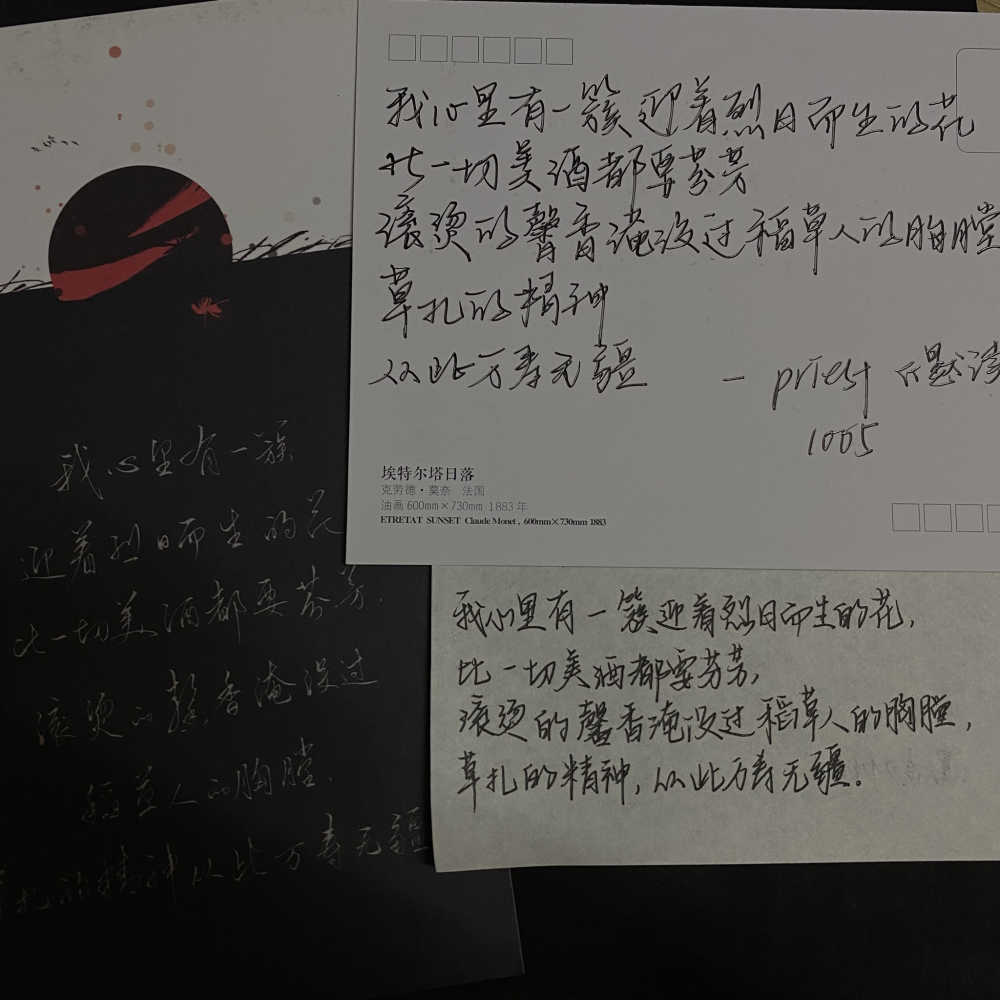 我心里有一簇迎着烈日而生的花
比一切美酒都要芬芳
滚烫的馨香淹没过稻草人的胸膛
草扎的精神
从此万寿无疆 — priest 《默读
1005
埃特尔塔日落
克劳德·莫奈 法国
油画 600mm×730mm 1883 年
ETRETAT SUNSET Claude Monet , 600mm×730mm 1883
我心里有一簇
迎着烈日而生的花
比一切美酒都要芬芳.
滚烫的馨香淹没过
稻草人的胸膛.
草扎的精神从此万寿无疆
我心里有一簇迎着烈日而生的花,
比一切美酒都要芬芳,
滚烫的馨香淹没过稻草人的胸膛,
草扎的精神, 从此万寿无疆.